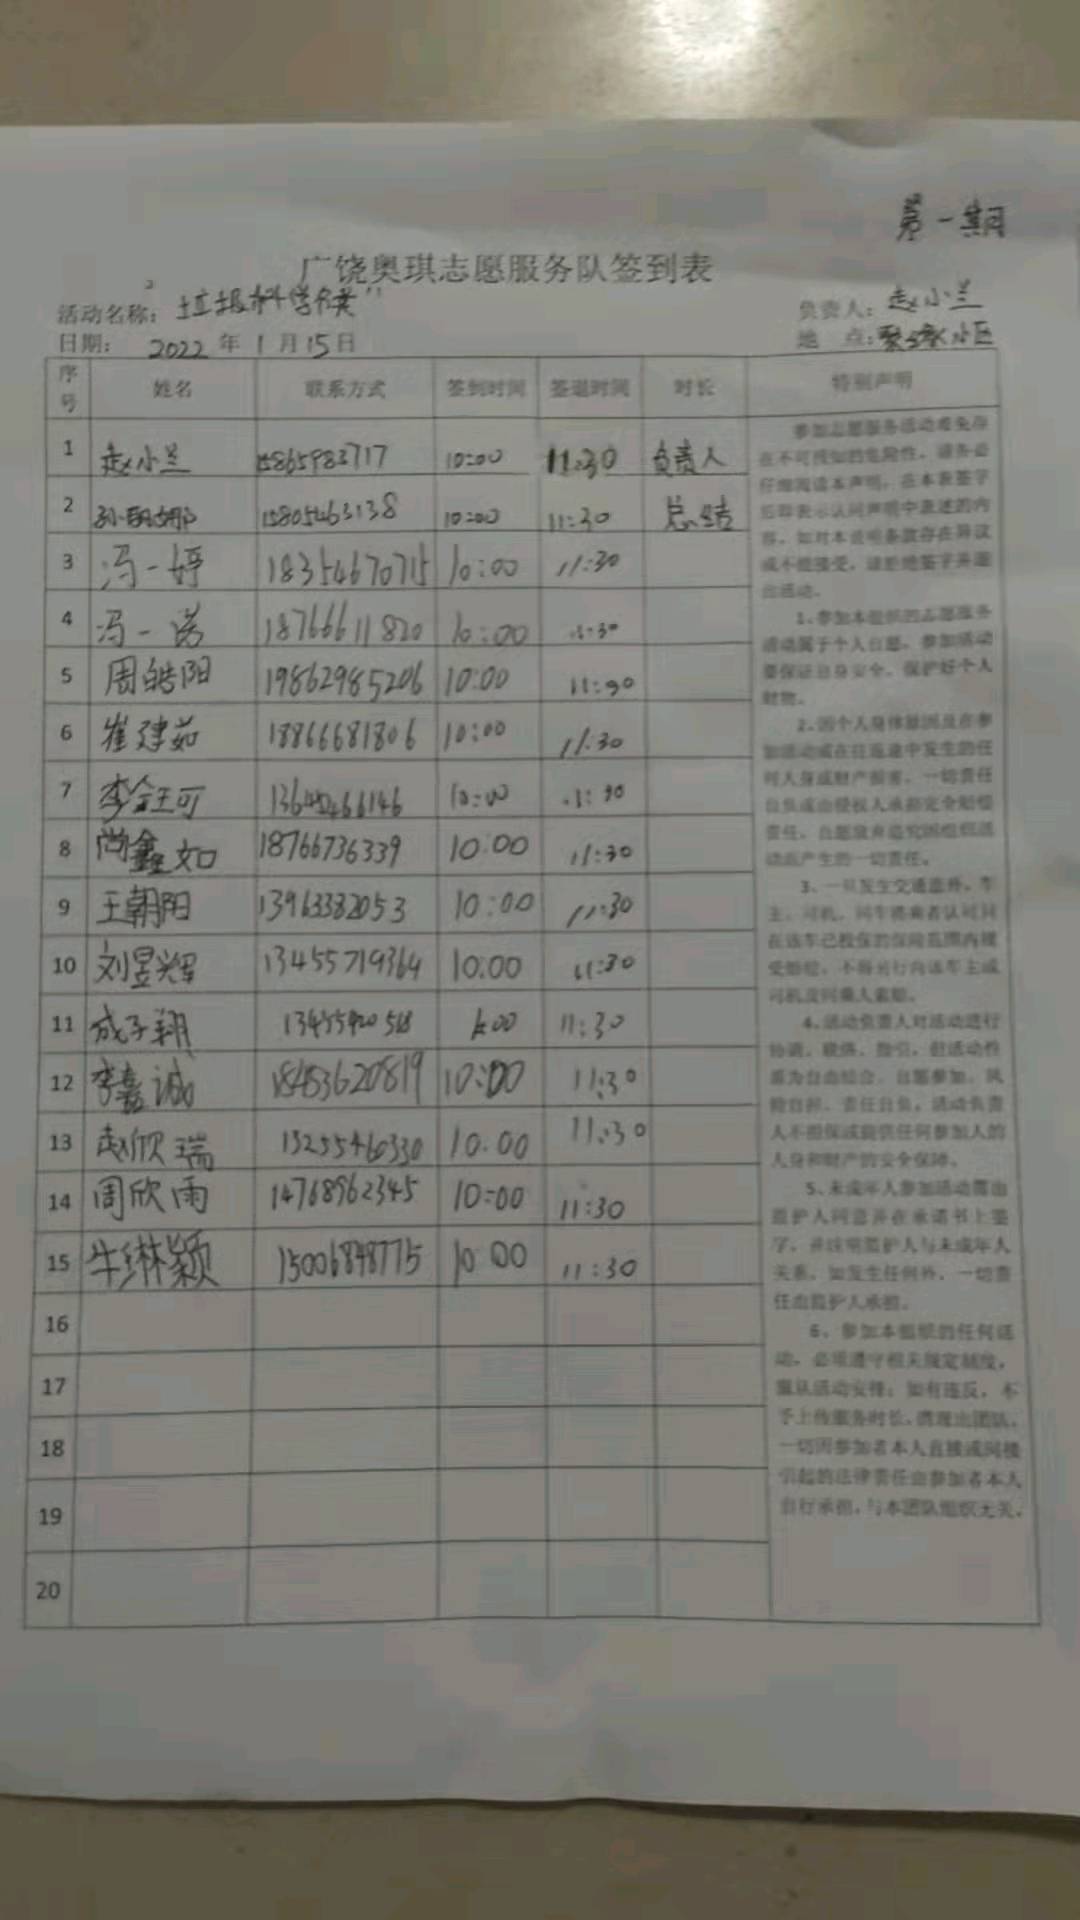 第一期
广饶奥琪志愿服务队签到表
活动名称：垃圾科学归类"
负责人：赵小兰
日期： 2022 年 1 月 15 日
地 点： 小区
序号 姓名 联系方式 签到时间 签退时间 时长 特别声明
1 赵小兰 15865983717 10:00 11:30 负责人
2 15805463138 10:00 11:30 总结
3 冯一婷 18354670715 10:00 11:30
4 冯一诺 18766611820 10:00
5 周皓阳 19862985206 10:00
6 崔建茹 18866681806 10:00 11:30
7 李 可 10:00
8 尚鑫如 18766736339 10:00 11:30
9 王朝阳 13963382053 10:00 11:30
10 刘昱辉 13455719364 10:00 11:30
11 成子翔 11:30
12 李嘉诚 18453620819 10:00 11:30
13 赵欣瑞 15255460330 10:00 11:30
14 周欣雨 14768962345 10:00 11:30
15 牛琳颖 15006848775 10:00 11:30
16
17
18
19
20
参加志愿服务活动难免存
在不可预知的危险性，请务必
仔细阅读本声明，在本表签字
后即表示认同声明中表述的内
容，如对本声明条款存在异议
或不能接受，请拒绝签字并退
出活动。
1、参加本组织的志愿服务
活动属于个人自愿，参加活动
要保证自身安全，保护好个人
财物。
2、因个人身体原因及在参
加活动或在往返途中发生的任
何人身或财产损害，一切责任
自负或由侵权人承担完全赔偿
责任，自愿放弃追究因组织活
动而产生的一切责任。
3、一旦发生交通意外，车
主、司机、同车搭乘者认可只
在该车已投保的保险范围内接
受赔偿，不得另行向该车主或
司机及同乘人索赔。
4、活动负责人对活动进行
协调、联络、指引，但活动性
质为自由结合、自愿参加、风
险自担、责任自负，活动负责
人不担保或提供任何参加人的
人身和财产的安全保障。
5、未成年人参加活动需由
监护人同意并在承诺书上签
字，并注明监护人与未成年人
关系，如发生任何意外，一切责
任由监护人承担。
6、参加本组织的任何活
动，必须遵守相关规定制度，
服从活动安排；如有违反，不
予上传服务时长，清理出团队。
一切因参加者本人直接或间接
引起的法律责任由参加者本人
自行承担，与本团队组织无关。